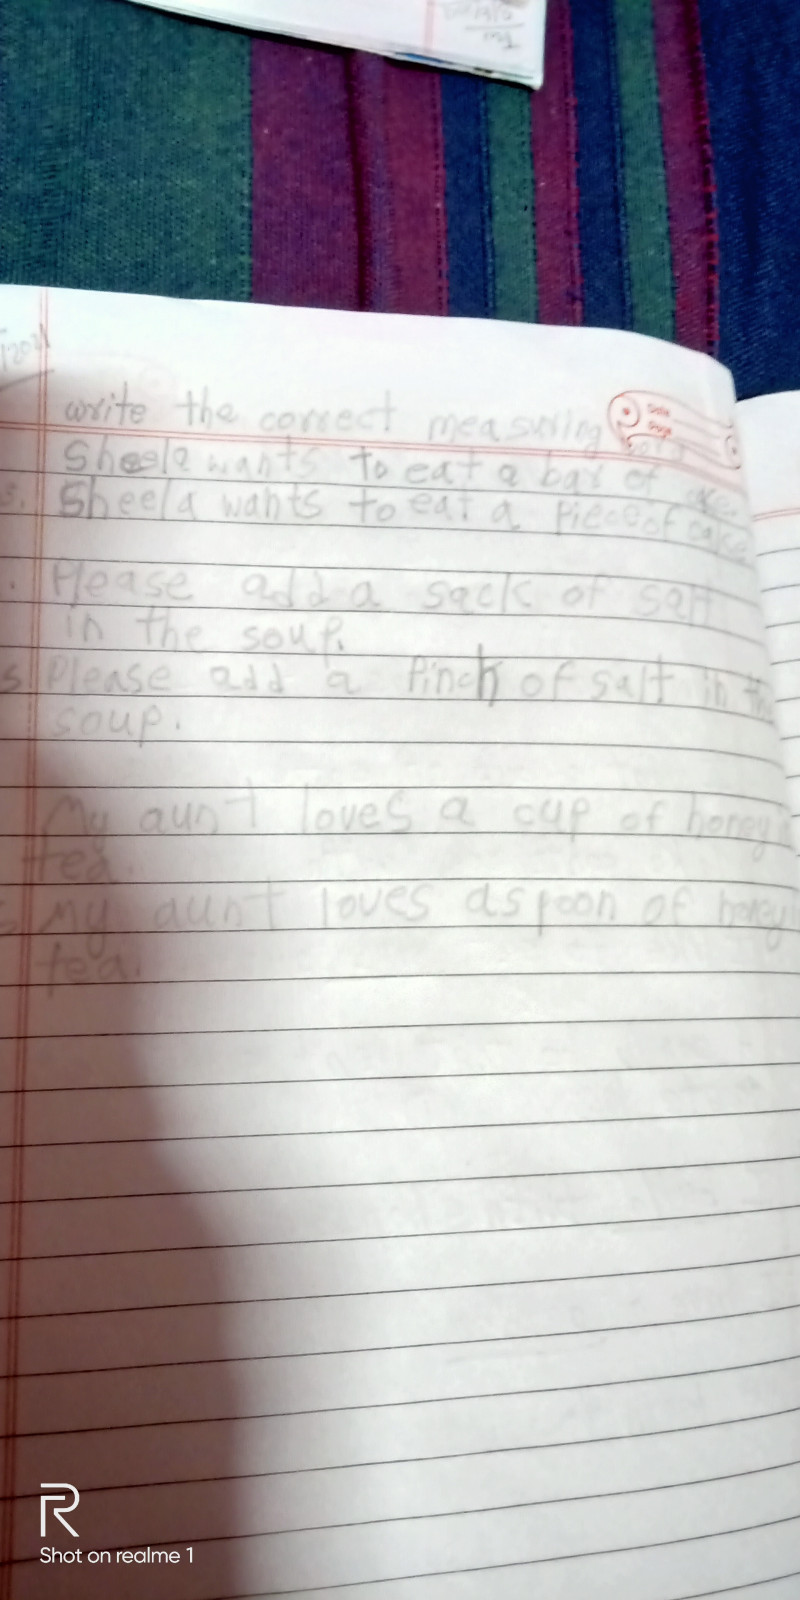 write the correct measuring
Date
Page
Sheela wants to eat a bar of
s. Sheela wants to eat a Piece of cake
Please add a sack of salt
in the soup.
s. Please add a Pinch of salt in the
soup.
My aunt loves a cup of honey
tea.
s. My aunt loves a spoon of honey
tea.
R
Shot on realme 1